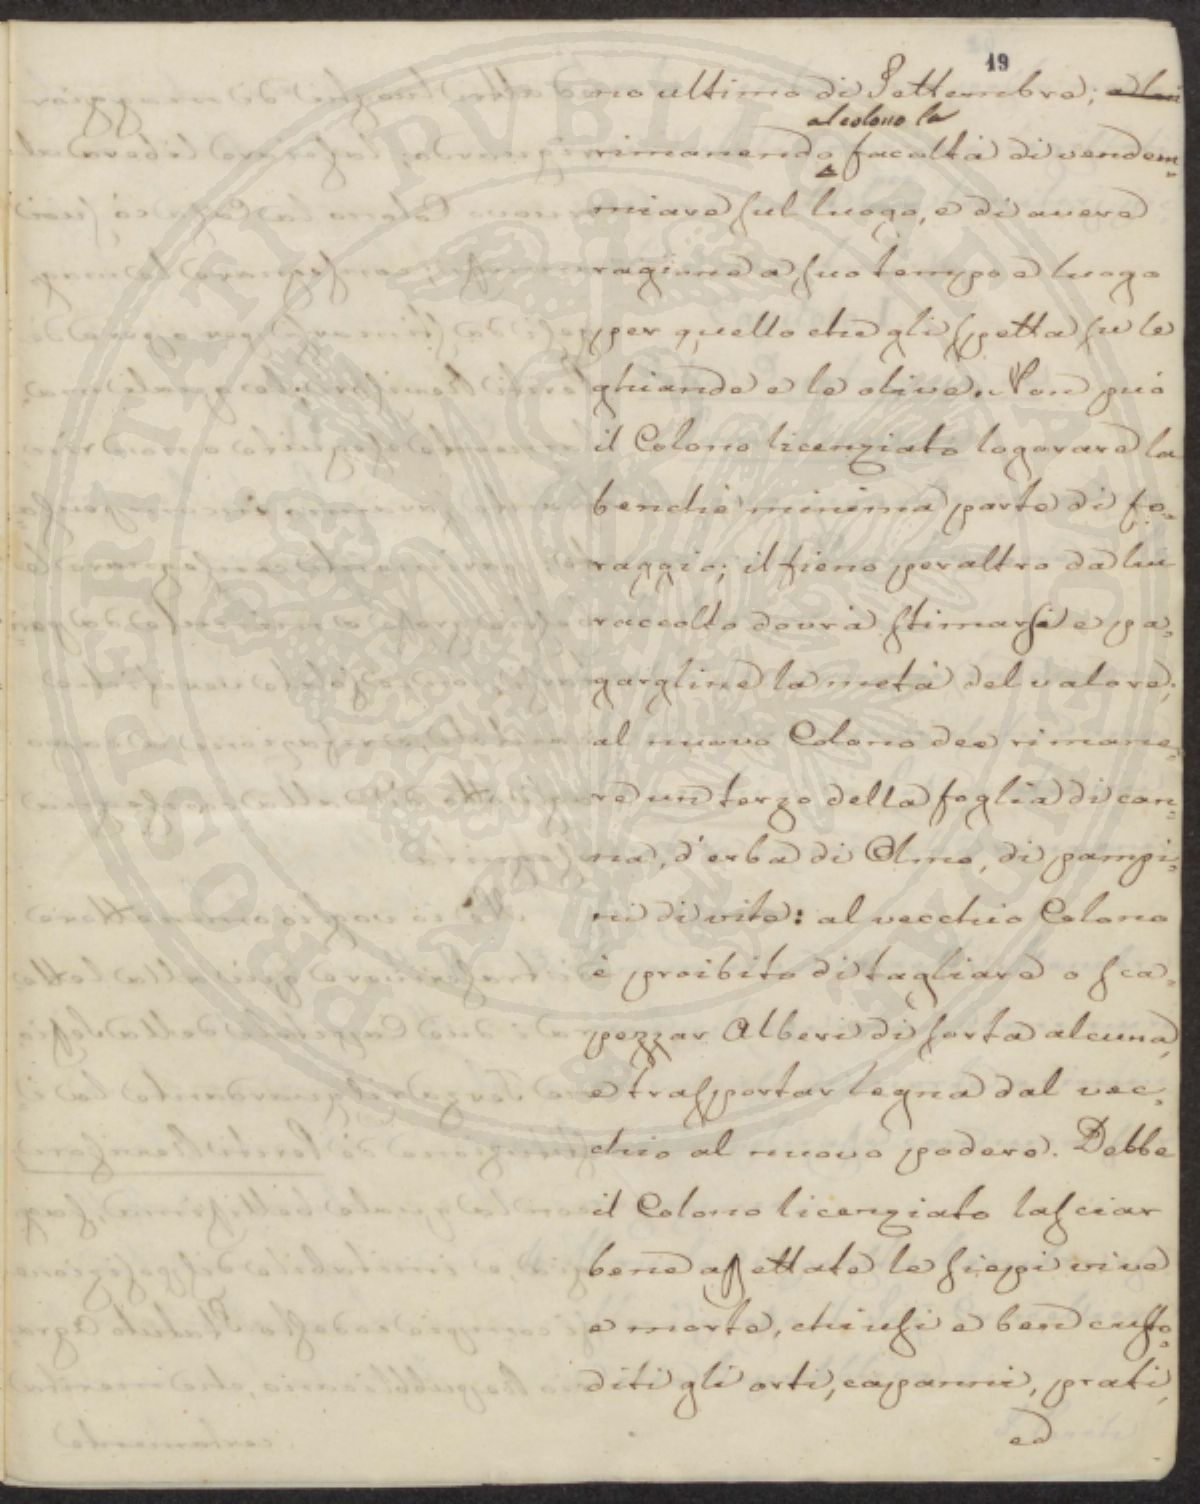 19
no ultimo di Settembre; a lui
al colono la
rimanendo facoltà di vendem=
miare sul luogo, e di avere
ragione a suo tempo e luogo
per quello che gli spetta su le
ghiande e le olive. Non può
il Colono licenziato logorare la
benchè minima parte di fo=
raggio; il fieno peraltro da lui
raccolto dovrà stimarsi e pa=
gargline la metà del valore;
al nuovo Colono dee rimane=
re un terzo della foglia di can=
na, d'erba di Olmo, di pampi=
ni di vite: al vecchio Colono
è proibito di tagliare o sca=
pezzar Alberi di sorta alcuna,
e trasportar legna dal vec=
chio al nuovo podere. Debbe
il Colono licenziato lasciar
bene assettate le siepi vive
e morte, chiusi e ben custo=
diti gli orti, capanni, prati,
ed
PROSPERITATI PUBLICAE